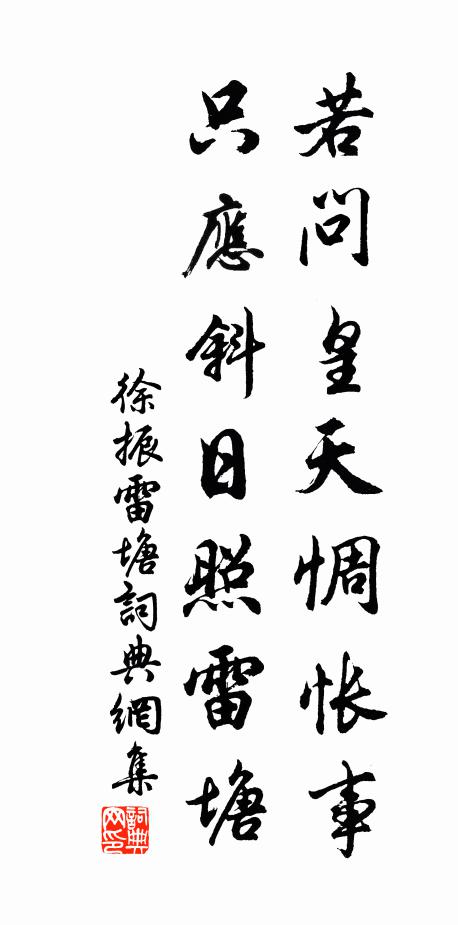 若問皇天惆悵事
只應斜日照雷塘
徐振雷塘詞典網集
詞典網印